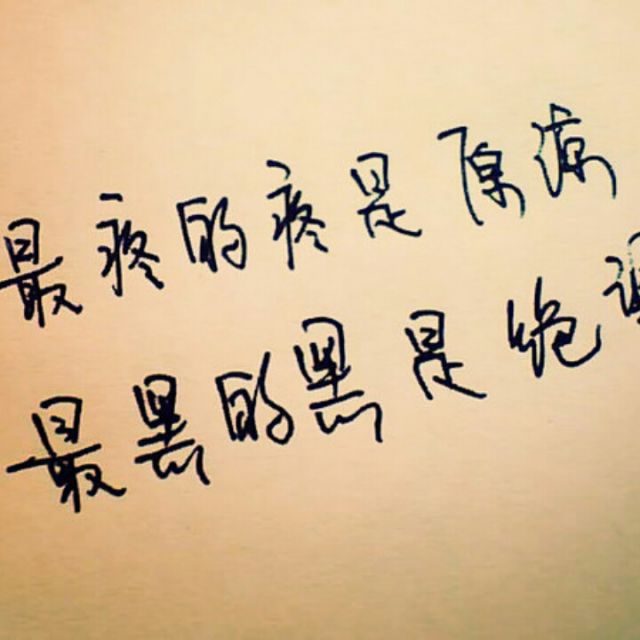 最疼的疼是原谅
最黑的黑是绝